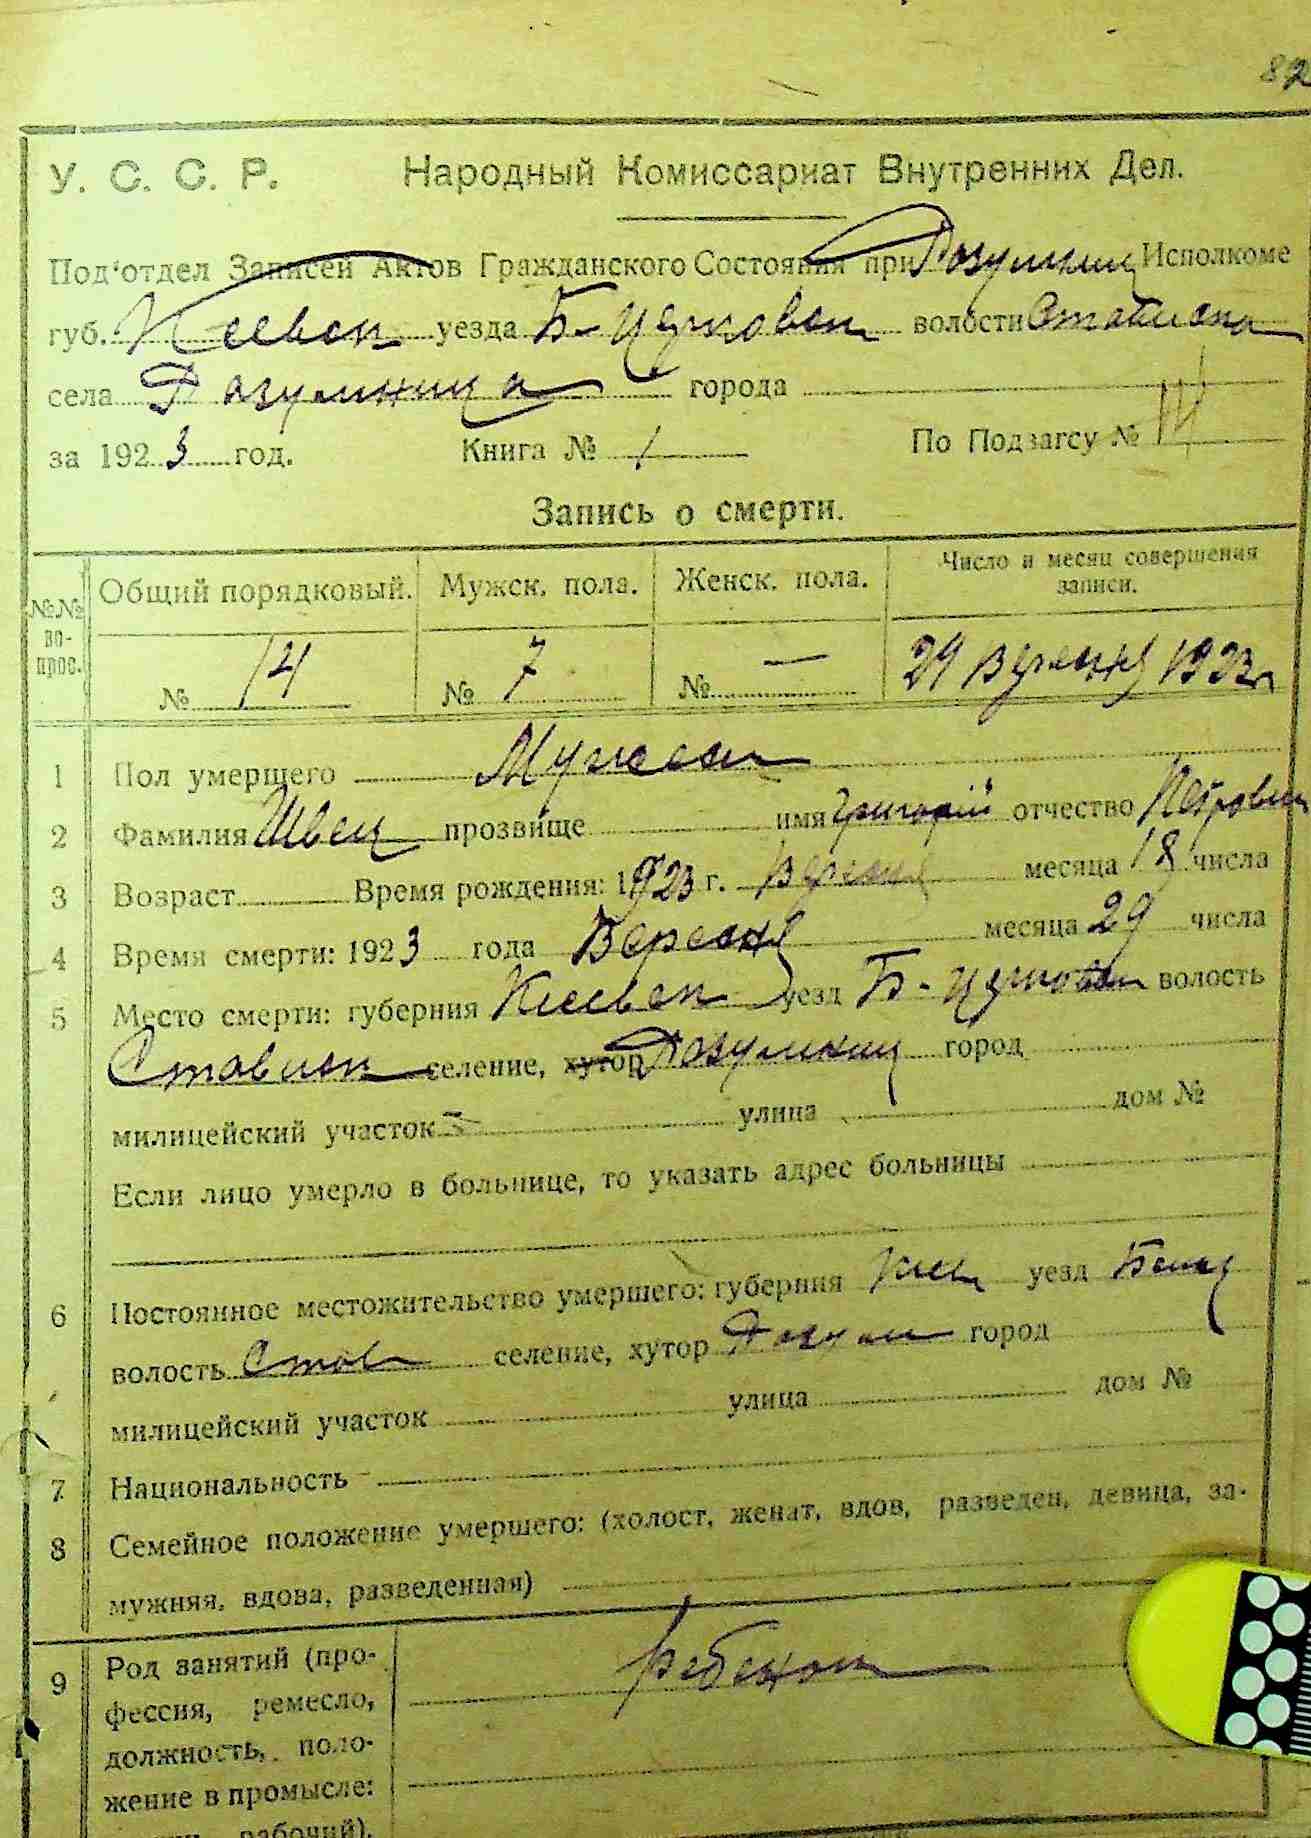 82
У. С. С. Р. Народный Комиссариат Внутренних Дел.
Под'отдел Записей Актов Гражданского Состояния при Розумниц Исполкоме
губ. Киевск уезда Б-Церковск волости Стависка
села Розумница города
за 1923 год. Книга № 1 По Подзагсу № 14
Запись о смерти.
№№ во- прос. Общий порядковый. Мужск. пола. Женск. пола. Число и месяц совершения записи.
№ 14 № 7 № — 29 Вересня 1923 г
1 Пол умершего Мужеск
2 Фамилия Швец прозвище имя Григорій отчество Петрович
3 Возраст Время рождения: 1923 г. Вересня месяца 18 числа
4 Время смерти: 1923 года Вересня месяца 29 числа
5 Место смерти: губерния Киевск уезд Б-Церковск волость
Стависк селение, хутор Розумниц город
милицейский участок улица дом №
Если лицо умерло в больнице, то указать адрес больницы
6 Постоянное местожительство умершего: губерния Киев уезд
волость Став селение, хутор Розум город
милицейский участок улица дом №
7 Национальность
8 Семейное положение умершего: (холост, женат, вдов, разведен, девица, за-
мужняя, вдова, разведенная)
9 Род занятий (про-
фессия, ремесло, ребенок
должность, поло-
жение в промысле:
рабочий).